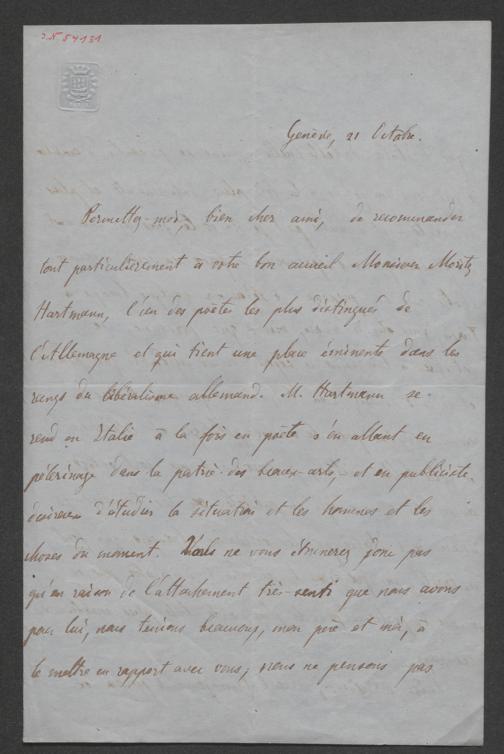 J.N 54131
Genève, 21 Octobre.
Permettez-moi, bien cher ami, de recomander
tout particulièrement à votre bon accueil Monsieur Moritz
Hartmann, l'un des poëtes les plus distingués de
l'Allemagne et qui tient une place éminente dans les
rangs du libéralisme allemand. M. Hartmann se
rend en Italie à la fois en poëte s'en allant en
pélerinage dans la patrie des beaux-arts, et en publiciste
désireux d'étudier la situation et les hommes et les
choses du moment. Vous ne vous étonnerez donc pas
qu'en raison de l'attachement très-senti que nous avons
pour lui, nous tenions beaucoup, mon père et moi, à
le mettre en rapport avec vous; nous ne pensons pas